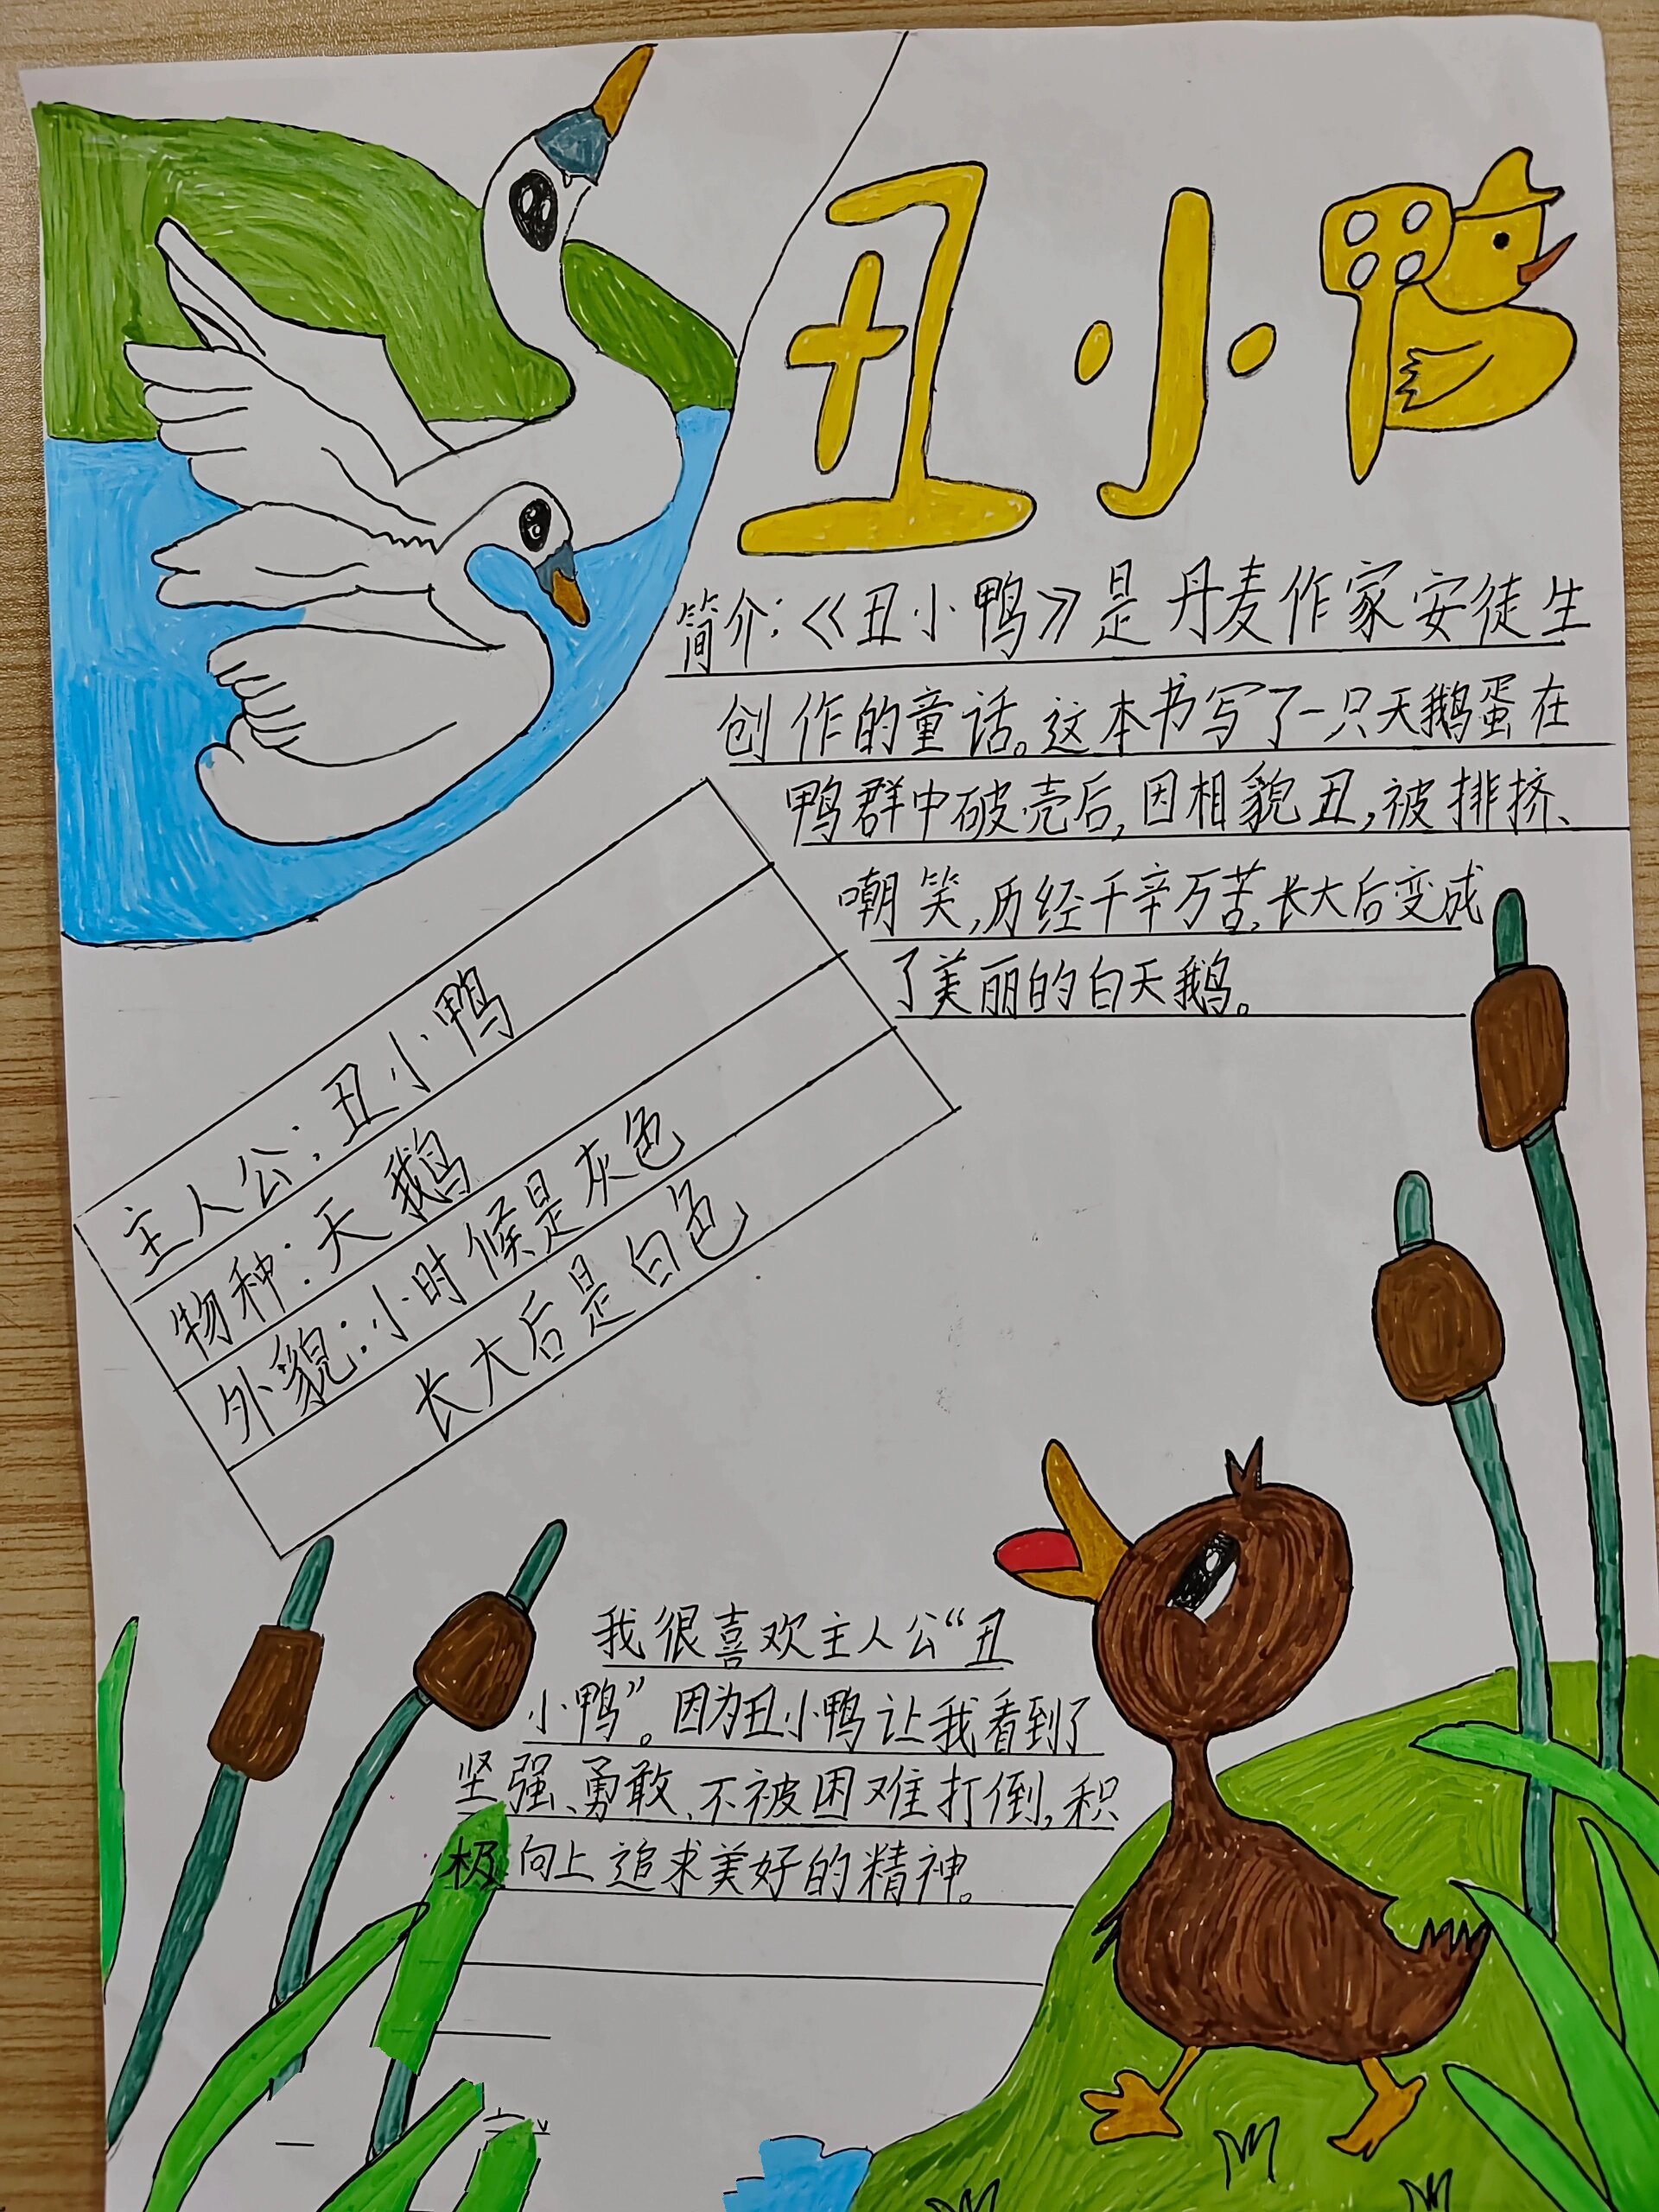 丑小鸭
简介:《丑小鸭》是丹麦作家安徒生
创作的童话。这本书写了一只天鹅蛋在
鸭群中破壳后,因相貌丑,被排挤、
嘲笑,历经千辛万苦,长大后变成
了美丽的白天鹅。
主人公:丑小鸭
物种:天鹅
外貌:小时候是灰色
长大后是白色
我很喜欢主人公“丑
小鸭”。因为丑小鸭让我看到了
坚强、勇敢、不被困难打倒,积
极向上追求美好的精神。